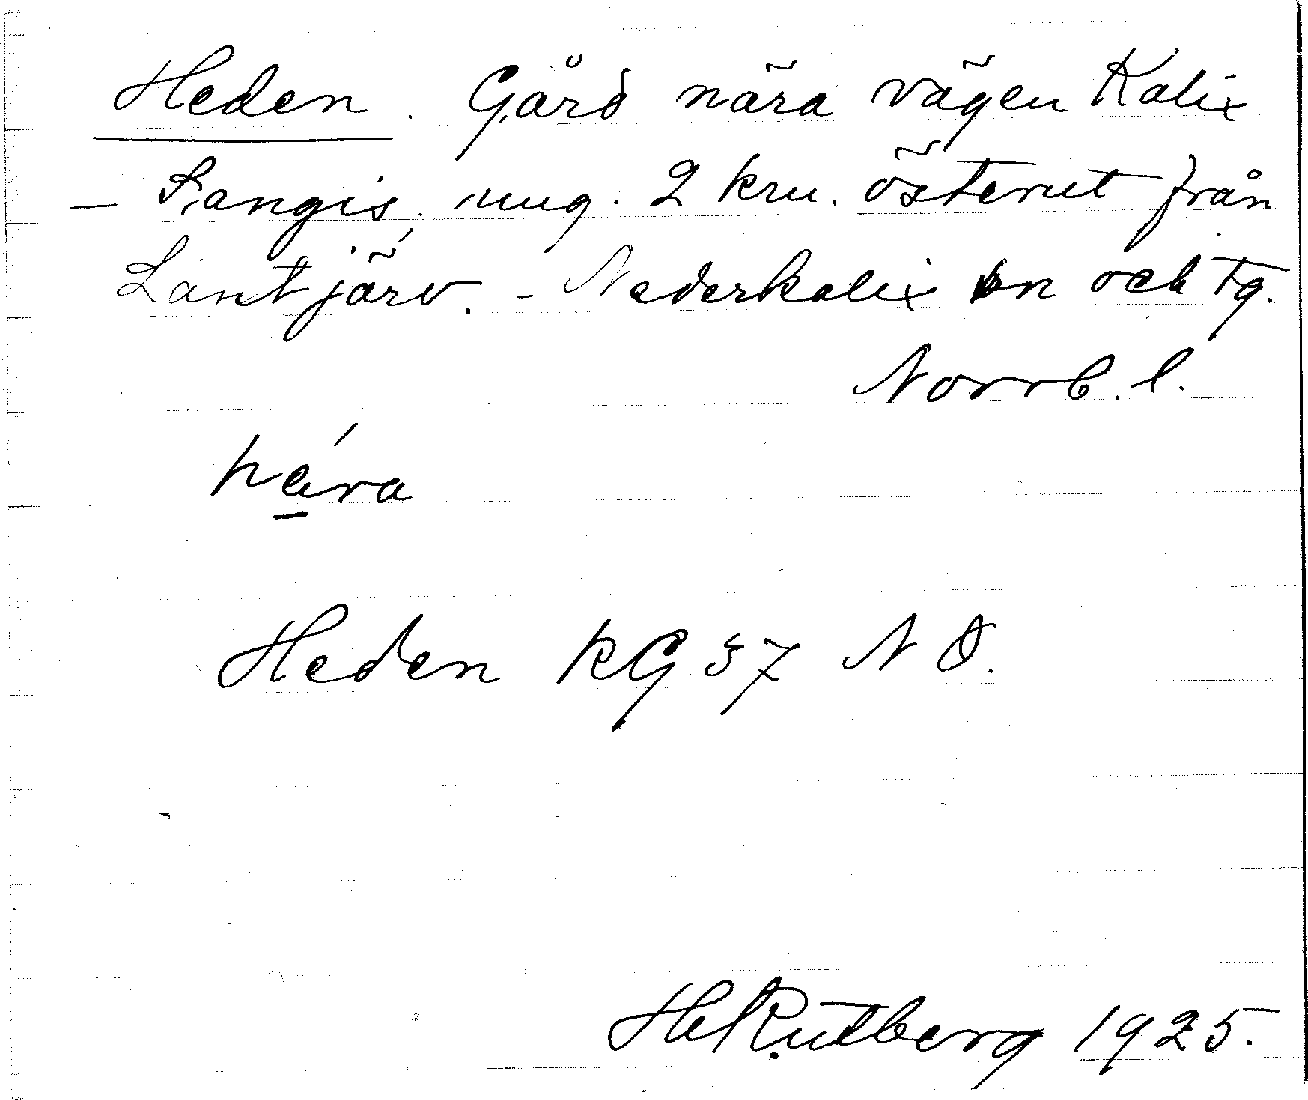 Heden. Gård nära vägen Kalix
– Sangis, ung. 2 km. österut från
Lantjärv. – Nederkalix sn och tg.
Norrb. l.
Heden KG 57 N Ö.
H Rutberg 1925.